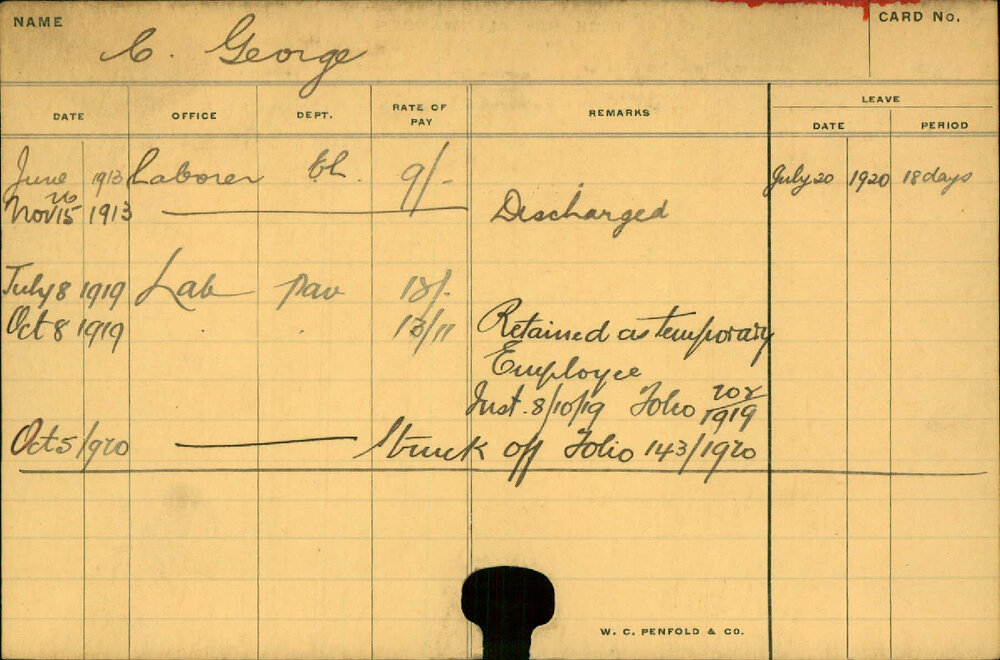 NAME
C. George
CARD No.
DATE OFFICE DEPT. RATE OF PAY REMARKS LEAVE
DATE PERIOD
June 26 1913 Laborer 9/- July 20 1920 18 days
Nov 15 1913 Discharged
July 8 1919 Lab Pav 13/-
Oct 8 1919 " " 13/11 Retained as temporary
Employee
Inst. 8/10/19 Folio 202/1919
Oct 5/1920 Struck off Folio 143/1920
W. C. PENFOLD & CO.